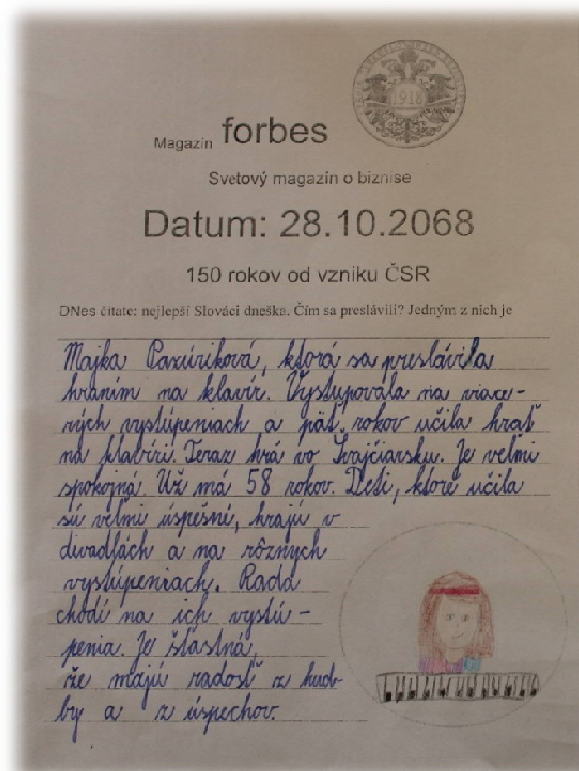 1918
Magazín forbes
Svetový magazín o biznise
Datum: 28.10.2068
150 rokov od vzniku ČSR
DNes čítate: nejlepší Slováci dneška. Čím sa preslávili? Jedným z nich je
Majka Paxúriková, ktorá sa preslávila
hraním na klavír. Vystupovala na viace-
rých vystúpeniach a päť rokov učila hrať
na klavíri. Teraz hrá vo Švajčiarsku. Je veľmi
spokojná. Už má 58 rokov. Deti, ktoré učila
sú veľmi úspešné, hrajú v
divadlách a na rôznych
vystúpeniach. Rada
chodí na ich vystú-
penia. Je šťastná,
že majú radosť z hud-
by a z úspechov.